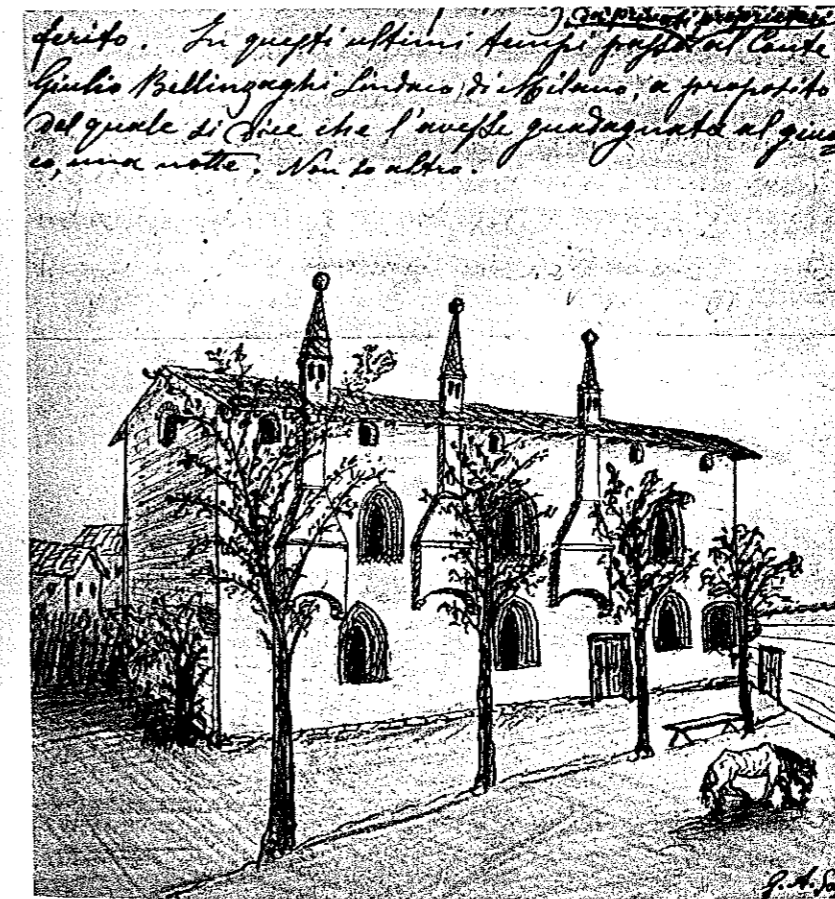 da privati proprietari
ferito. In questi ultimi tempi passò al Conte
Giulio Bellinzaghi Sindaco di Milano, a proposito
del quale si dice che l'avesse guadagnata al giuo=
co, una notte. Non so altro.
G. A.